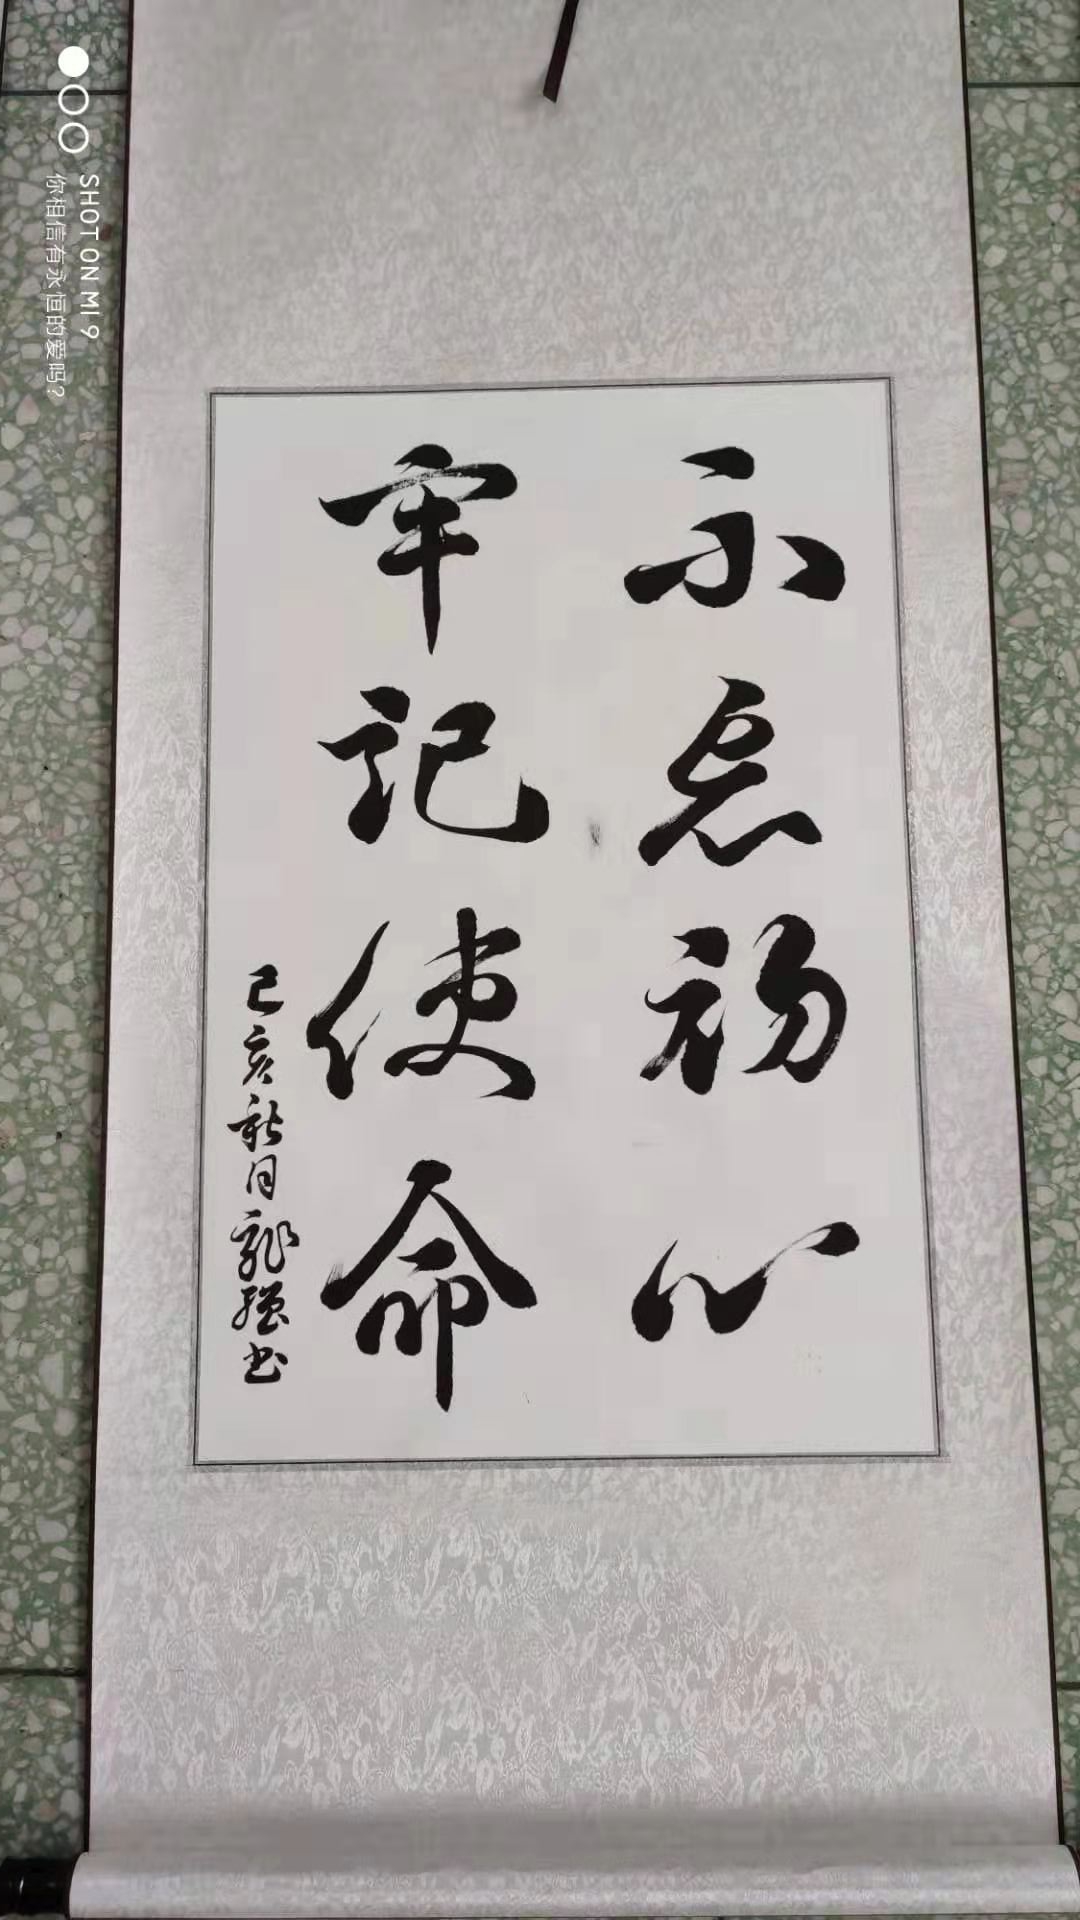 不忘初心
牢记使命
己亥秋月 强书
SHOT ON MI 9
你相信有永恒的爱吗？